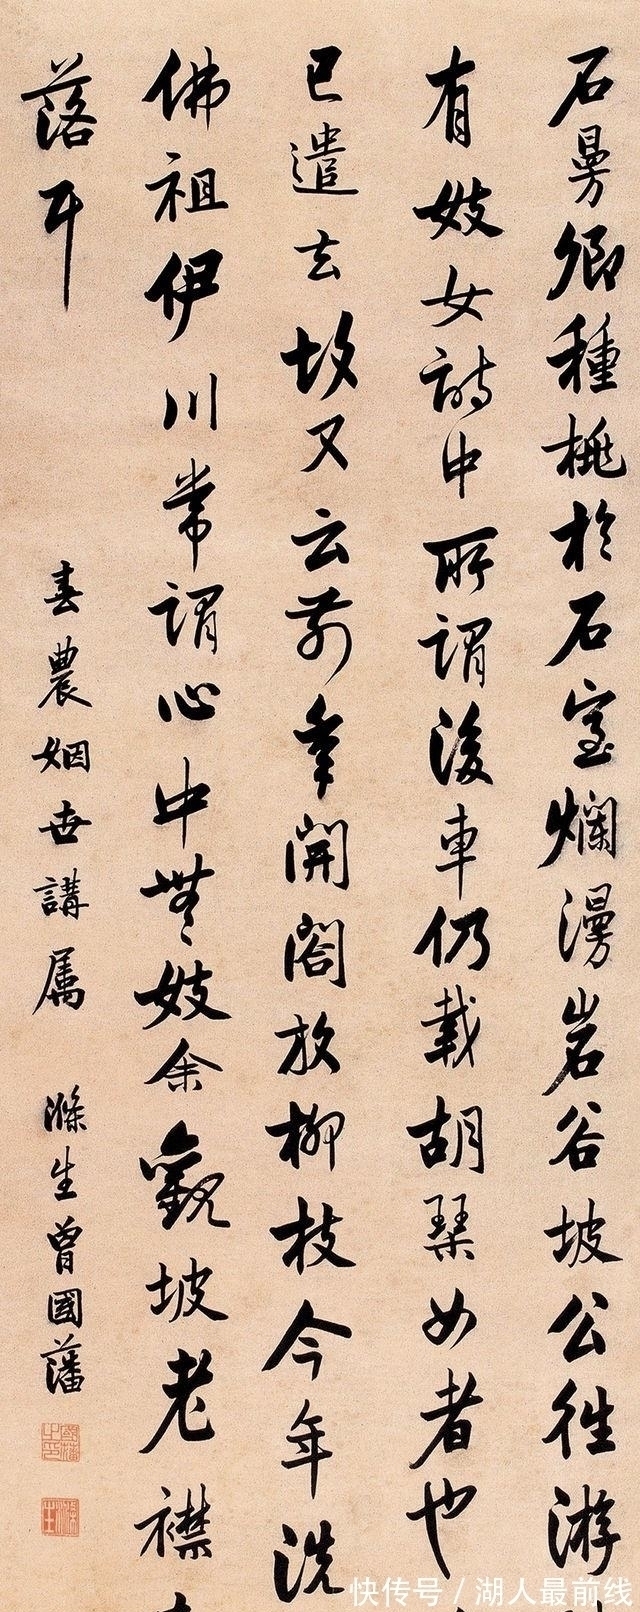 石曼卿種桃於石室爛漫岩谷坡公往游
有妓女詩中所謂後車仍載胡琴女者也
已遣去故又云前年開閤放柳枝今年洗
佛祖伊川常謂心中無妓余觀坡老襟
落耳
春農姻世講属
滌生曾國藩
國藩之印
滌生
快传号/湖人最前线